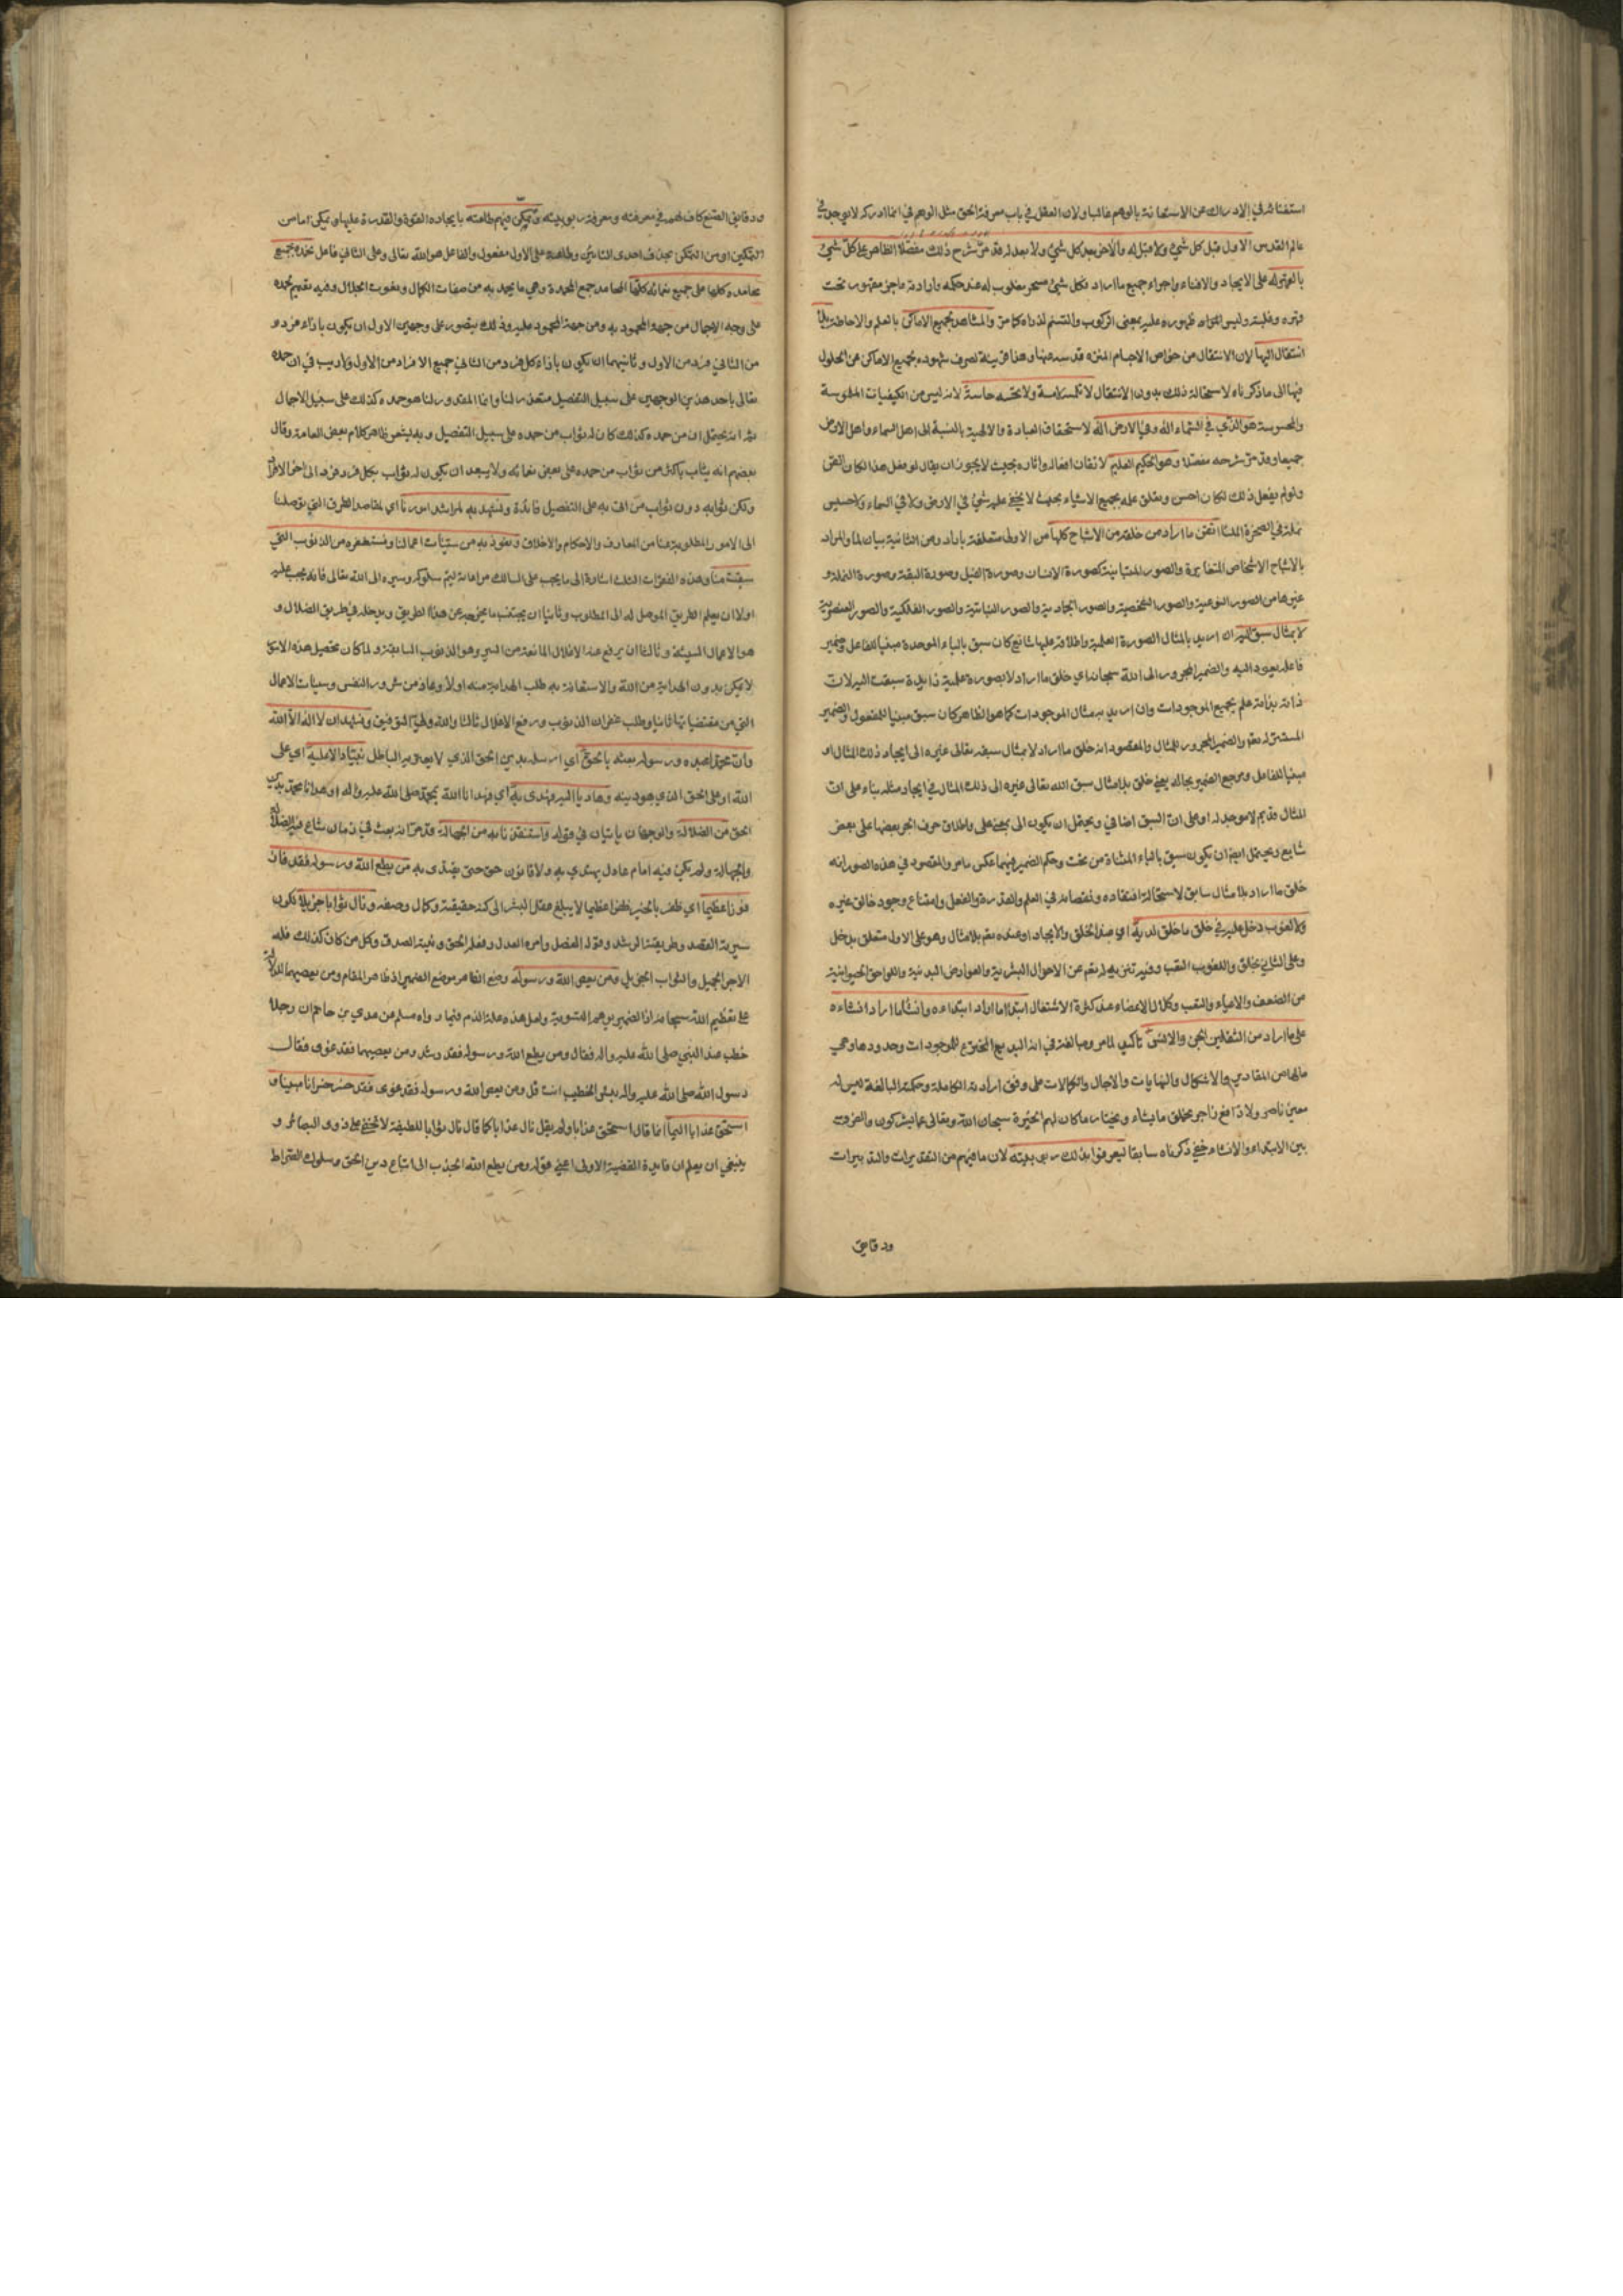 استغنائه في الادراك عن الاستعانة بالوهم غالبا ولان العقل في باب معرفة الحق مثل الوهم في انما ادركه لا يوجد في
عالم القدس الاول قبل كل شيء ولا قبل له والاخر بعد كل شيء ولا بعد له قد مر شرح ذلك مفصلا الظاهر على كل شيء
بالقهر له على الايجاد والافناء واجراء جميع ما اراد فكل شيء مسخر مغلوب له عند حكمه وارادته عاجز مقهور تحت
قهره وغلبته وليس المراد ظهوره عليه بمعنى الركوب والتسنم لذراه كما مر والمشاهد لجميع الاماكن بالعلم والاحاطة بلا
انتقال اليها لان الانتقال من خواص الاجسام المنزه قدسه عنها وهذا قرينة لصرف شهوده بجميع الاماكن عن الحلول
فيها الى ما ذكرناه لاستحالة ذلك بدون الانتقال لا تلمسه لامسة ولا تحسه حاسة لانه ليس من الكيفيات الملموسة
والمحسوسة هو الذي في السماء اله وفي الارض اله لاستحقاق العبادة والالهية بالنسبة الى اهل السماء واهل الارض
جميعا وقد مر شرحه مفصلا وهو الحكيم العليم لاتقان افعاله واثاره بحيث لا يجوز ان يقال لو فعل هذا لكان اتقن
ولو لم يفعل ذلك لكان احسن وتعلق علمه بجميع الاشياء بحيث لا يخفى عليه شيء في الارض ولا في السماء ولا حسيس
نملة في الصخرة الملساء اتقن ما اراد من خلقه من الاشباح كلها من الاولى متعلقة باراد ومن الثانية بيان لما والمراد
بالاشباح الاشخاص المتغايرة والصور المتباينة كصورة الانسان وصورة الفيل وصورة البقة وصورة النملة و
غيرها من الصور النوعية والصور الشخصية والصور الجمادية والصور النباتية والصور الفلكية والصور العنصرية
لا بمثال سبق اليه ان اريد بالمثال الصورة العلمية واطلاقه عليها شائع كان سبق بالباء الموحدة مبنيا للفاعل وضمير
فاعله يعود اليه والضمير المجرور الى الله سبحانه اي خلق ما اراد لا بصورة علمية زايدة سبقت اليه لان
ذاته بذاته علم بجميع الموجودات وان اريد به مثال الموجودات كما هو الظاهر كان سبق مبنيا للمفعول والضمير
المستتر له تعالى والضمير المجرور للمثال والمقصود انه خلق ما اراد لا بمثال سبقه تعالى غيره الى ايجاد ذلك المثال او
مبنيا للفاعل ومرجع الضمير بحاله يعني خلق بلا مثال سبق الله تعالى غيره الى ذلك المثال في ايجاد مثله بناء على ان
المثال قديم لا موجد له او على ان السبق اضافي ويحتمل ان يكون الى بمعنى على واطلاق حرف الجر بعضها على بعض
شايع ويحتمل ايضا ان يكون سيق بالياء المثناة من تحت وحكم الضمير فيهما عكس ما مر والمقصود في هذه الصور انه
خلق ما اراد بلا مثال سابق لاستحالة افتقاده ونقصانه في العلم والقدرة والفعل وامتناع وجود خالق غيره
ولا لغوب دخل عليه في خلق ما خلق لديه اي عند الخلق والايجاد او عنده نعم بلا مثال وهو على الاول متعلق بدخل
وعلى الثاني بخلق واللغوب التعب وفيه تنزيه له نعم عن الاحوال البشرية والعوارض البدنية واللواحق الحيوانية
من الضعف والاعياء والتعب وكلال الاعضاء عند كثرة الاشتغال ابتدأ ما اراد ابتداءه وانشأ ما اراد انشاءه
على ما اراد من الثقلين الجن والانس تأكيد لما مر ومبالغة في انه البديع المخترع للموجودات وحدودها وهي
مالها من المقادير والاشكال والنهايات والاجال والكمالات على وفق ارادته الكاملة وحكمته البالغة ليس له
معين ناصر ولا دافع زاجر يخلق ما يشاء ويختار ما كان لهم الخيرة سبحان الله وتعالى عما يشركون والفرق
بين الابتداء والانشاء خفي ذكرناه سابقا ليعرفوا بذلك ربوبيته لان ما فيهم من التقديرات والتدبيرات
ودقايق
ودقايق الصنع كاف لهم في معرفته ومعرفة ربوبيته وتمكن فيهم طاعته بايجاده القوة والقدرة عليها وتمكن اما من
التمكين او من التمكن بحذف احدى التائين وطاعته على الاول مفعول والفاعل هو الله تعالى وعلى الثاني فاعل نحمده بجميع
محامده كلها على جميع نعمائه كلها المحامد جمع المحمدة وهي ما يحمد به من صفات الكمال ونعوت الجلال وفيه تقديم لحمده
على وجه الاجمال من جهة المحمود به ومن جهة المحمود عليه وذلك يتصور على وجهين الاول ان يكون بازاء فرد و
من الثاني فرد من الاول وثانيهما ان يكون بازاء كل فرد من الثاني جميع الافراد من الاول ولا ريب في ان حمده
تعالى باحد هذين الوجهين على سبيل التفصيل متعذر لنا وانما المقدور لنا هو حمده كذلك على سبيل الاجمال
ثم انه يحتمل ان من حمده كذلك كان له ثواب من حمده على سبيل التفصيل وبه يشعر ظاهر كلام بعض العامة وقال
بعضهم انه يثاب باكثر من ثواب من حمده على بعض نعمائه ولا يبعد ان يكون له ثواب بكل فرد فرد الى اخر الافراد
ولكن ثوابه دون ثواب من اتى به على التفصيل فائدة ونستهديه لمراشد امورنا اي لمقاصد الطرق التي توصلنا
الى الامور المطلوبة منا من المعارف والاحكام والاخلاق ونعوذ به من سيئات اعمالنا ونستغفره من الذنوب التي
سبقت منا وهذه الفقرات الثلاث اشارة الى ما يجب على السالك مراعاته ليتم سلوكه وسيره الى الله تعالى فانه يجب عليه
اولا ان يعلم الطريق الموصل له الى المطلوب وثانيا ان يجتنب ما يخرجه عن هذا الطريق ويدخله في طريق الضلال و
هو الاعمال السيئة وثالثا ان يرفع عنه الاغلال المانعة من السير وهو الذنوب السابقة ولما كان تحصيل هذه الامور
لا يمكن بدون الهداية من الله والاستعانة به طلب الهداية منه اولا وعاذ من شرور النفس وسيئات الاعمال
التي من مقتضياتها ثانيا وطلب غفران الذنوب ورفع الاغلال ثالثا والله ولي التوفيق ونشهد ان لا اله الا الله
وان محمدا عبده ورسوله بعثه بالحق اي ارسله بدين الحق الذي لا يعتريه الباطل نبيا دالا عليه اي على
الله او على الحق الذي هو دينه وهاديا اليه فهدى به اي فهدانا الله بمحمد صلى الله عليه واله او هدانا محمد بدين
الحق من الضلالة والوجهان ياتيان في قوله واستنقذنا به من الجهالة قد مر انه بعث في زمان شاع فيه الضلالة
والجهالة ولم يكن فيه امام عادل يهتدي به ولا قانون حق حتى يقتدى به من يطع الله ورسوله فقد فاز
فوزا عظيما اي ظفر بالخير ظفرا عظيما لا يبلغ عقل البشر الى كنه حقيقته وكمال وصفه ونال ثوابا جزيلا لكون
سيرته القصد وطريقته الرشد وقوله الفصل وامره العدل وفعله الحق ونيته الصدق وكل من كان كذلك فله
الاجر الجميل والثواب الجزيل ومن يعص الله ورسوله وضع الظاهر موضع الضمير اذ ظاهر المقام ومن يعصهما للدلالة
على تعظيم الله سبحانه اذ الضمير يوهم التسوية ولعل هذه علة الذم فيما رواه مسلم عن عدي بن حاتم ان رجلا
خطب عند النبي صلى الله عليه واله فقال ومن يطع الله ورسوله فقد رشد ومن يعصهما فقد غوى فقال
رسول الله صلى الله عليه واله بئس الخطيب انت قل ومن يعص الله ورسوله فقد غوى فقد خسر خسرانا مبينا و
استحق عذابا اليما انما قال استحق عذابا ولم يقل نال عذابا كما قال نال ثوابا للطيفة لا تخفى على ذوي البصائر و
ينبغي ان يعلم ان فايدة القضية الاولى اعني قوله ومن يطع الله الجذب الى اتباع دين الحق وسلوك الصراط